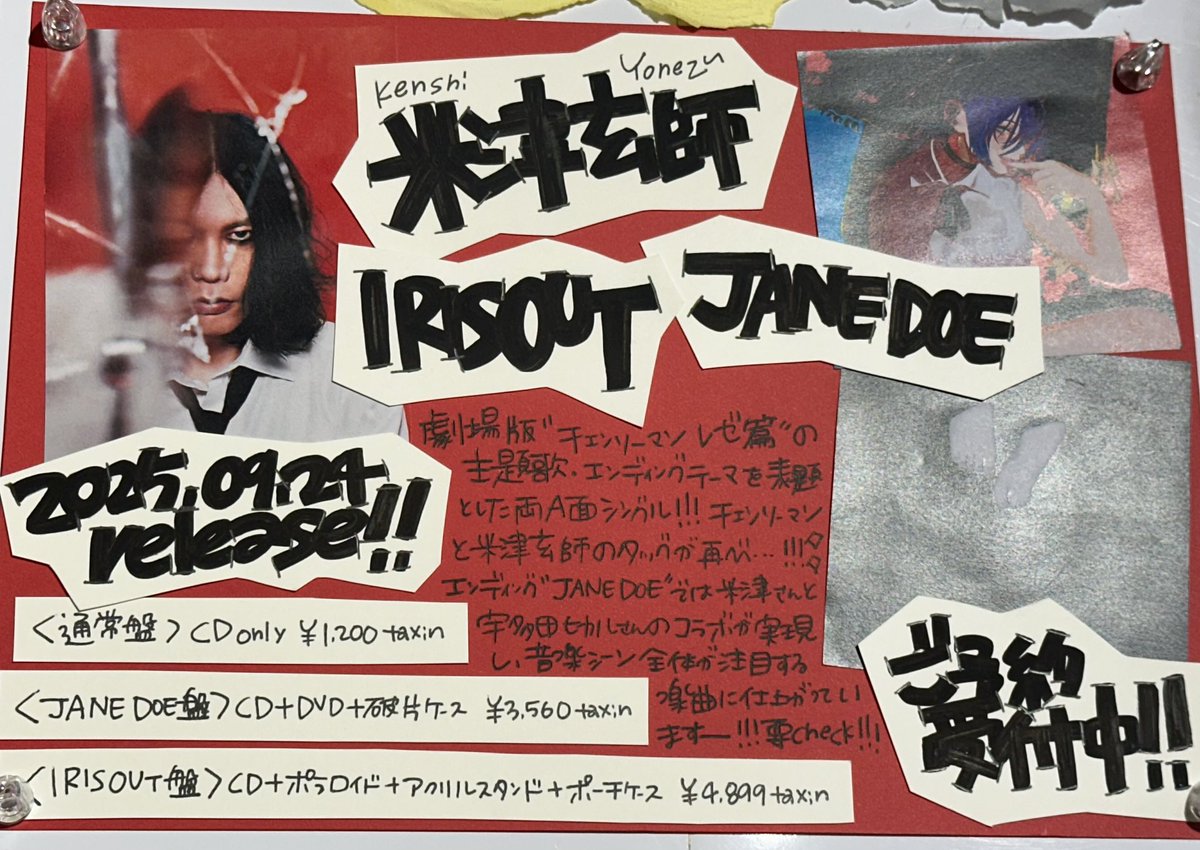 Kenshi Yonezu
米津玄師
IRIS OUT JANE DOE
2025.09.24
release!!
劇場版"チェンソーマン レゼ篇"の
主題歌・エンディングテーマを表題
とした両A面シングル!!! チェンソーマン
と米津玄師のタッグが再び…!!!
エンディング"JANE DOE"では米津さんと
宇多田ヒカルさんのコラボが実現
し、音楽シーン全体が注目する
楽曲に仕上がってい
ますー!!!要check!!!
<通常盤> CD only ¥1,200 taxin
<JANE DOE盤> CD+DVD+破片ケース ¥3,560 taxin
<IRIS OUT盤> CD+ポラロイド+アクリルスタンド+ポーチケース ¥4,899 taxin
受付中!!